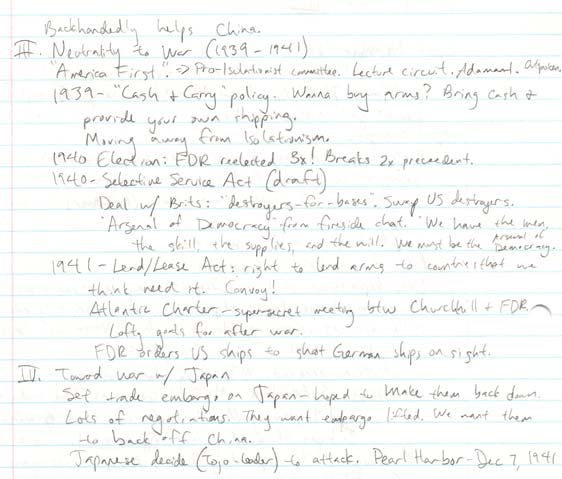 Backhandedly helps China.
III. Neutrality to War (1939-1941)
"America First" => Pro-Isolationist committee. Lecture circuit. Adamant. Outspoken.
1939- "Cash & Carry" policy. Wanna buy arms? Bring cash &
provide your own shipping.
Moving away from Isolationism.
1940 Election: FDR reelected 3x! Breaks 2x precedent.
1940- Selective Service Act (draft)
Deal w/ Brits: "destroyers-for-bases". Swap US destroyers.
"Arsenal of Democracy" from fireside chat. "We have the men,
the skill, the supplies, and the will. We must be the Arsenal of Democracy.
1941- Lend/Lease Act: right to lend arms to countries that we
think need it. Convoy!
Atlantic Charter - supersecret meeting btw Churchhill & FDR.
Lofty goals for after war.
FDR orders US ships to shoot German ships on sight.
IV. Toward War w/ Japan
Set trade embargo on Japan - hoped to make them back down.
Lots of negotiations. They want embargo lifted. We want them
to back off China.
Japanese decide (Tojo-leader) to attack. Pearl Harbor - Dec 7, 1941